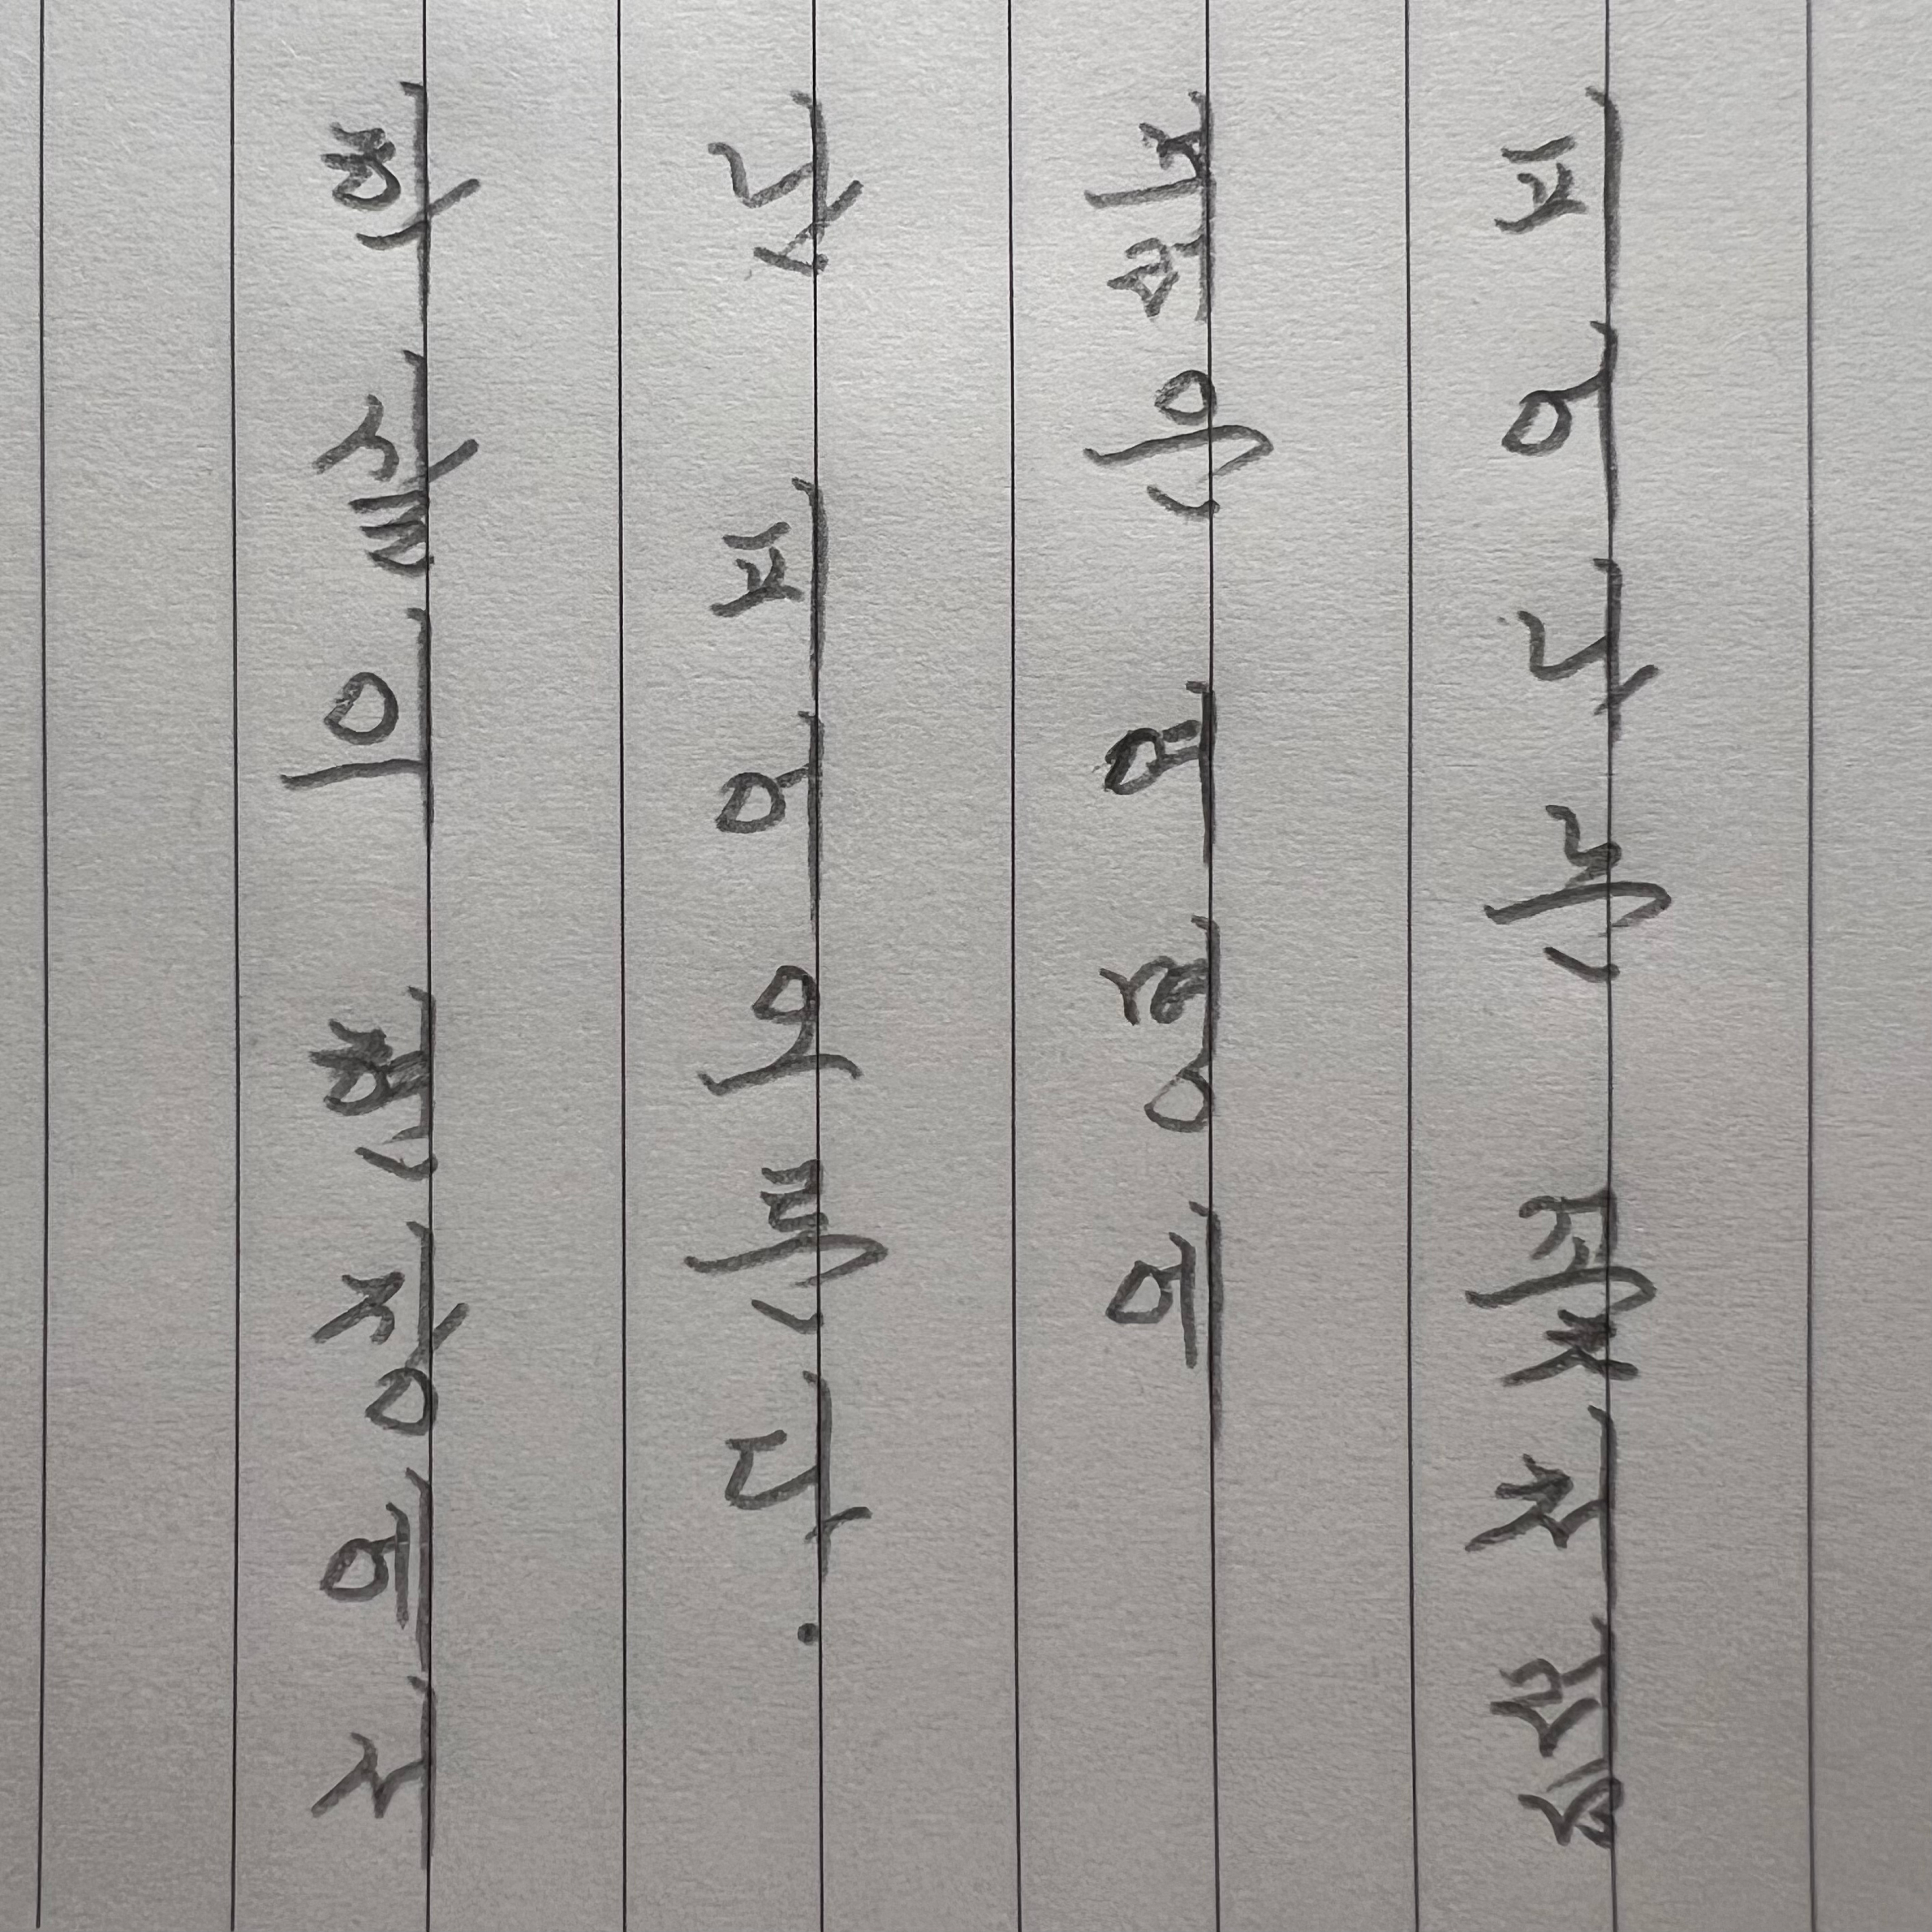 학살의 현장에서
난 피어오른다.
붉은 여명에
피어나는 꽃처럼